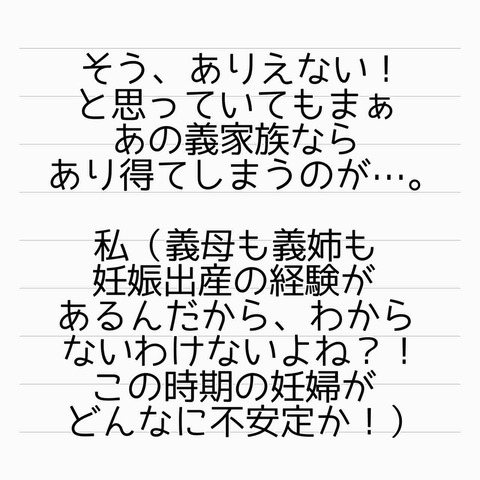 そう、ありえない！
と思っていてもまぁ
あの義家族なら
あり得てしまうのが…。
私（義母も義姉も
妊娠出産の経験が
あるんだから、わから
ないわけないよね？！
この時期の妊婦が
どんなに不安定か！）